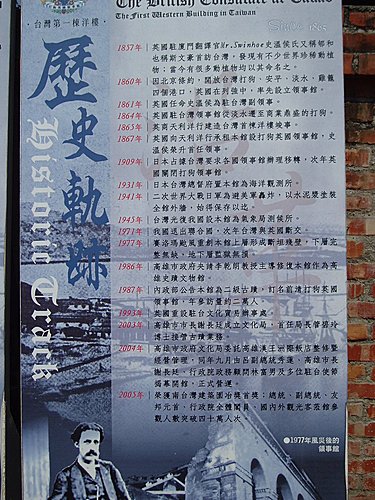 The British Consulate at Takao
台灣第一棟洋樓
The First Western Building in Taiwan
Since 1865
歷史軌跡
Historic Track
1857年 英國駐廈門翻譯官Mr.Swinhoe史溫侯氏又稱郇和
也稱斯文豪首訪台灣，發現有不少世界珍稀動植
物，當今有很多動植物均以其命名之。
1860年 因北京條約，開放台灣的打狗、安平、淡水、雞籠
四個港口，英國在列強中，率先設立領事館。
1861年 英國任命史溫侯為駐台灣副領事。
1864年 英國駐台灣領事館從淡水遷至商業鼎盛的打狗。
1865年 英商天利洋行建造台灣首棟洋樓竣事。
1867年 英國向天利洋行承租本館設打狗英國領事館，史
溫侯榮升首任領事。
1909年 日本占據台灣要求各國領事館辦理移轉，次年英
國關閉打狗領事館。
1931年 日本台灣總督府置本館為海洋觀測所。
1941年 二次世界大戰日軍為避美軍轟炸，以水泥漿塗裝
全館外牆，始得保存以迄。
1945年 台灣光復我國設本館為氣象局測候所。
1971年 我國退出聯合國，次年台灣與英國斷交。
1977年 賽洛瑪颱風重創本館上層形成斷垣殘壁，下層完
整無缺，地下層監獄無損。
1986年 高雄市政府央請李乾朗教授主導修復本館作為高
雄史蹟文物館。
1987年 內政部公告本館為二級古蹟，訂名前清打狗英國
領事館，年參訪量約二萬人。
1993年 英國重設駐台文化貿易辦事處。
2003年 高雄市市長謝長廷成立文化局，首任局長管碧玲
博士接管古蹟業務。
2004年 高雄市政府文化局委託高雄漢王洲際飯店整修暨
經營管理，同年九月也呂副總統秀蓮、高雄市長
謝長廷、行政院政務顧問林富男及多位駐台使節
揭幕開館，正式營運。
2005年 榮獲南台灣建築園冶獎首獎；總統、副總統、友
邦元首、行政院全體閣員、國內外觀光客蒞館參
觀人數突破四十萬人次
●1977年風災後的
領事館